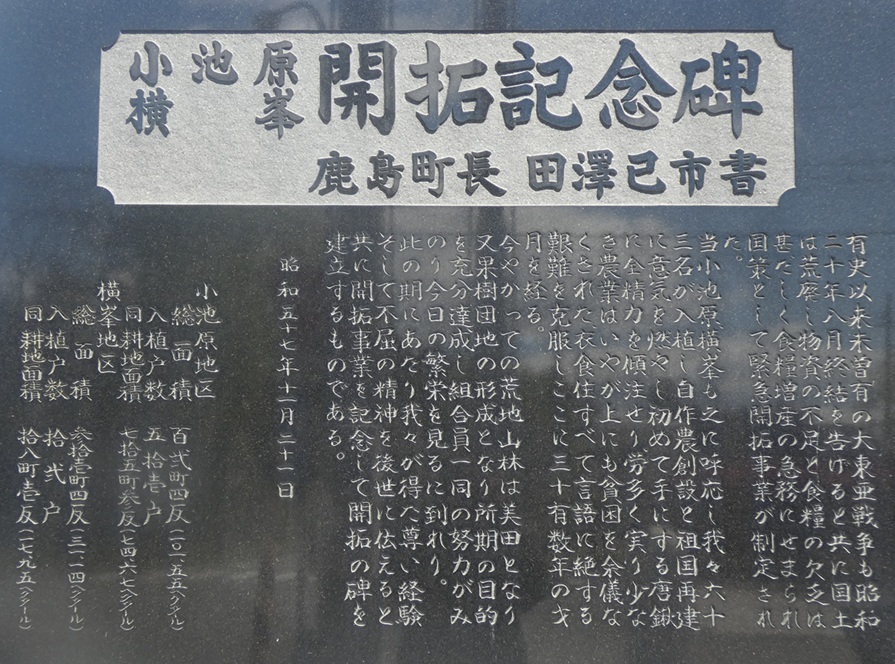 小池原
小横峯
開拓記念碑
鹿島町長 田澤已市書
有史以来未曽有の大東亜戦争も昭和
二十年八月終結を告げると共に国土
は荒廃し物資の不足と食糧の欠乏は
甚だしく食糧増産の急務にせまられ
国策として緊急開拓事業が制定され
た。
当小池原横峯も之に呼応し我々六十
三名が入植し自作農創設と祖国再建
に意気を燃やし初めて手にする唐鍬
に全精力を傾注せり労多く実り少な
き農業はいやが上にも貧困を余儀な
くされた衣食住すべて言語に絶する
艱難を克服しここに三十有数年の才
月を経る。
今やかっての荒地山林は美田となり
又果樹団地の形成となり所期の目的
を充分達成し組合員一同の努力がみ
のり今日の繁栄を見るに到れり。
此の期にあたり我々が得た尊い経験
そして不屈の精神を後世に伝えると
共に開拓事業を記念して開拓の碑を
建立するものである。
昭和五十七年十一月二十一日
小池原地区
総面積 百弐町四反(一〇一.五五ヘクタール)
入植戸数 五拾壱戸
同耕地面積 七拾五町参反(七四.六七ヘクタール)
横峯地区
総面積 参拾壱町四反(三一.一四ヘクタール)
入植戸数 拾弐戸
同耕地面積 拾八町壱反(一七.九五ヘクタール)